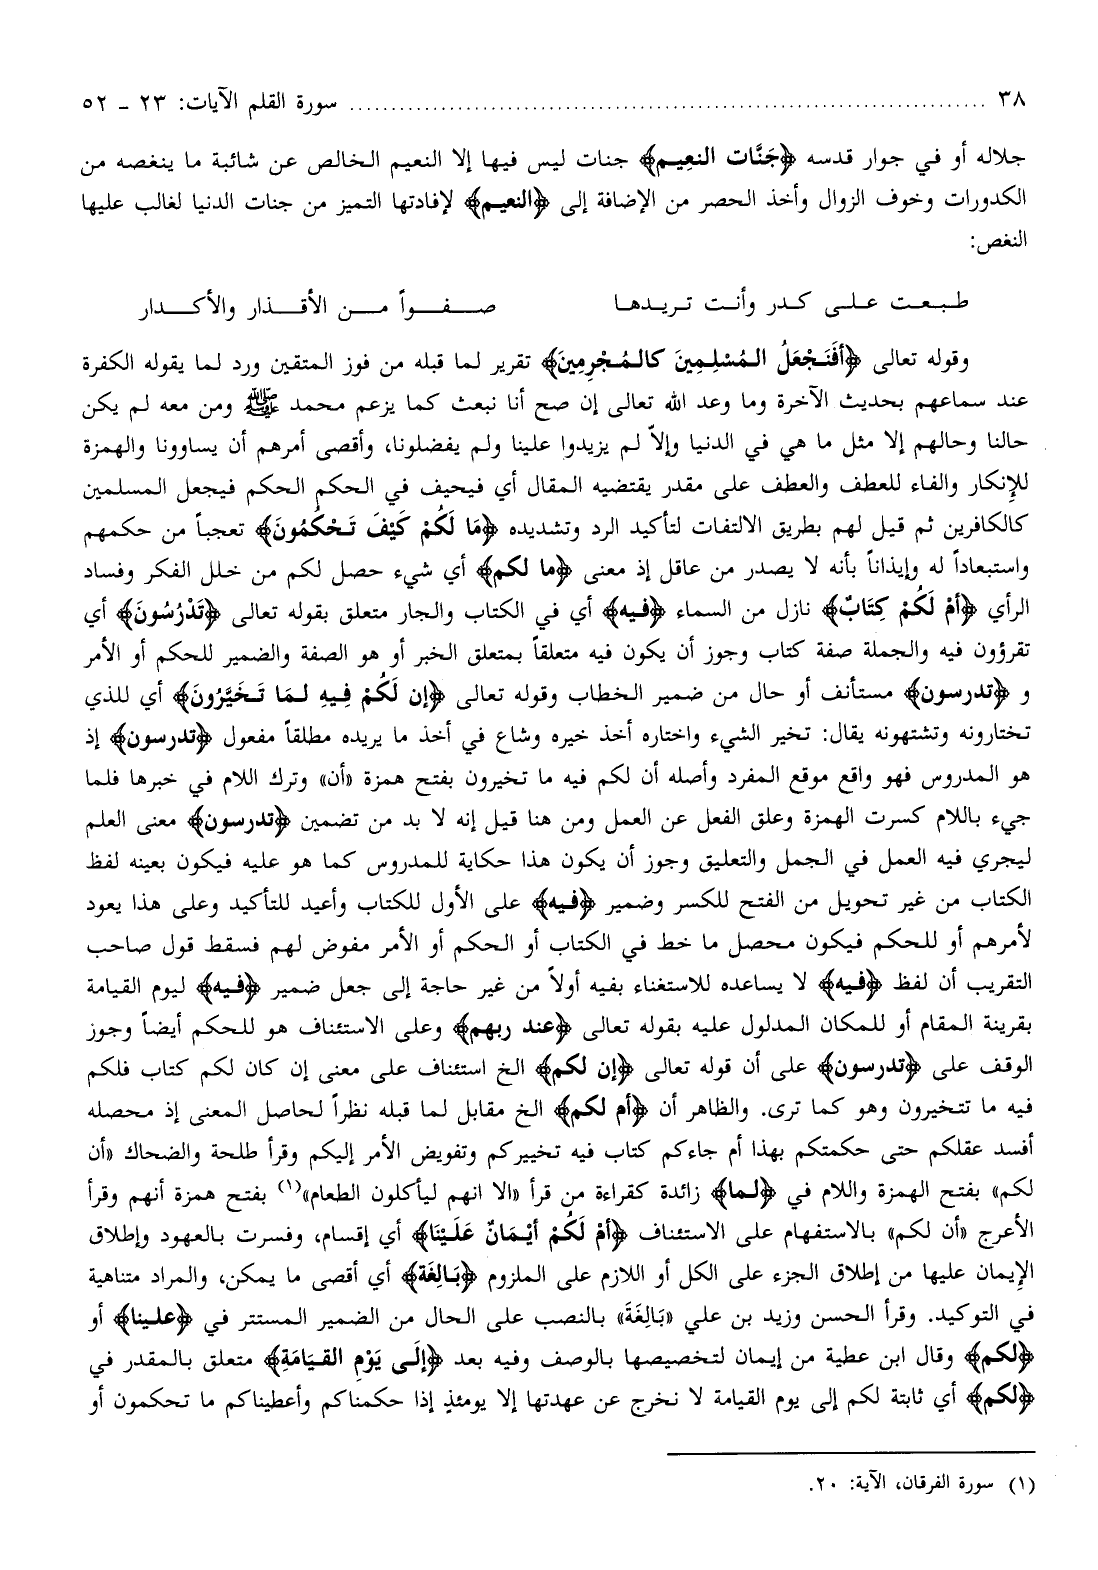 ٣٨ ............ سورة القلم الآيات: ٢٣ ـ ٥٢
جلاله أو في جوار قدسه ﴿جَنَّات النعِيم﴾ جنات ليس فيها إلا النعيم الخالص عن شائبة ما ينغصه من
الكدورات وخوف الزوال وأخذ الحصر من الإضافة إلى ﴿النعيم﴾ لإفادتها التميز من جنات الدنيا لغالب عليها
النغص:
طبعت على كدر وأنت تريدها صفواً من الأقذار والأكدار
وقوله تعالى ﴿أفَنَجْعَلُ المُسْلِمِينَ كالمُجْرِمِينَ﴾ تقرير لما قبله من فوز المتقين ورد لما يقوله الكفرة
عند سماعهم بحديث الآخرة وما وعد الله تعالى إن صح أنا نبعث كما يزعم محمد ﷺ ومن معه لم يكن
حالنا وحالهم إلا مثل ما هي في الدنيا وإلاّ لم يزيدوا علينا ولم يفضلونا، وأقصى أمرهم أن يساوونا والهمزة
للإنكار والفاء للعطف والعطف على مقدر يقتضيه المقال أي فيحيف في الحكم الحكم فيجعل المسلمين
كالكافرين ثم قيل لهم بطريق الالتفات لتأكيد الرد وتشديده ﴿مَا لَكُمْ كَيْفَ تَحْكُمُونَ﴾ تعجباً من حكمهم
واستبعاداً له وإيذاناً بأنه لا يصدر من عاقل إذ معنى ﴿ما لكم﴾ أي شيء حصل لكم من خلل الفكر وفساد
الرأي ﴿أمْ لَكُمْ كِتَابٌ﴾ نازل من السماء ﴿فيه﴾ أي في الكتاب والجار متعلق بقوله تعالى ﴿تَدْرُسُونَ﴾ أي
تقرؤون فيه والجملة صفة كتاب وجوز أن يكون فيه متعلقاً بمتعلق الخبر أو هو الصفة والضمير للحكم أو الأمر
و ﴿تدرسون﴾ مستأنف أو حال من ضمير الخطاب وقوله تعالى ﴿إن لَكُمْ فِيهِ لمَا تَخَيَّرُونَ﴾ أي للذي
تختارونه وتشتهونه يقال: تخير الشيء واختاره أخذ خيره وشاع في أخذ ما يريده مطلقاً مفعول ﴿تدرسون﴾ إذ
هو المدروس فهو واقع موقع المفرد وأصله أن لكم فيه ما تخيرون بفتح همزة «أن» وترك اللام في خبرها فلما
جيء باللام كسرت الهمزة وعلق الفعل عن العمل ومن هنا قيل إنه لا بد من تضمين ﴿تدرسون﴾ معنى العلم
ليجري فيه العمل في الجمل والتعليق وجوز أن يكون هذا حكاية للمدروس كما هو عليه فيكون بعينه لفظ
الكتاب من غير تحويل من الفتح للكسر وضمير ﴿فيه﴾ على الأول للكتاب وأعيد للتأكيد وعلى هذا يعود
لأمرهم أو للحكم فيكون محصل ما خط في الكتاب أو الحكم أو الأمر مفوض لهم فسقط قول صاحب
التقريب أن لفظ ﴿فيه﴾ لا يساعده للاستغناء بفيه أولاً من غير حاجة إلى جعل ضمير ﴿فيه﴾ ليوم القيامة
بقرينة المقام أو للمكان المدلول عليه بقوله تعالى ﴿عند ربهم﴾ وعلى الاستئناف هو للحكم أيضاً وجوز
الوقف على ﴿تدرسون﴾ على أن قوله تعالى ﴿إن لكم﴾ الخ استئناف على معنى إن كان لكم كتاب فلكم
فيه ما تتخيرون وهو كما ترى. والظاهر أن ﴿أم لكم﴾ الخ مقابل لما قبله نظراً لحاصل المعنى إذ محصله
أفسد عقلكم حتى حكمتكم بهذا أم جاءكم كتاب فيه تخييركم وتفويض الأمر إليكم وقرأ طلحة والضحاك «أن
لكم» بفتح الهمزة واللام في ﴿لما﴾ زائدة كقراءة من قرأ «الا انهم ليأكلون الطعام»(١) بفتح همزة أنهم وقرأ
الأعرج «أن لكم» بالاستفهام على الاستئناف ﴿أمْ لَكُمْ أيْمَانٌ عَلَيْنَا﴾ أي إقسام، وفسرت بالعهود وإطلاق
الإيمان عليها من إطلاق الجزء على الكل أو اللازم على الملزوم ﴿بَالِغَة﴾ أي أقصى ما يمكن، والمراد متناهية
في التوكيد. وقرأ الحسن وزيد بن علي «بَالِغَةَ» بالنصب على الحال من الضمير المستتر في ﴿علينا﴾ أو
﴿لكم﴾ وقال ابن عطية من إيمان لتخصيصها بالوصف وفيه بعد ﴿إلَى يَوْمِ القيَامَةِ﴾ متعلق بالمقدر في
﴿لكم﴾ أي ثابتة لكم إلى يوم القيامة لا نخرج عن عهدتها إلا يومئذٍ إذا حكمناكم وأعطيناكم ما تحكمون أو
(١) سورة الفرقان، الآية: ٢٠.